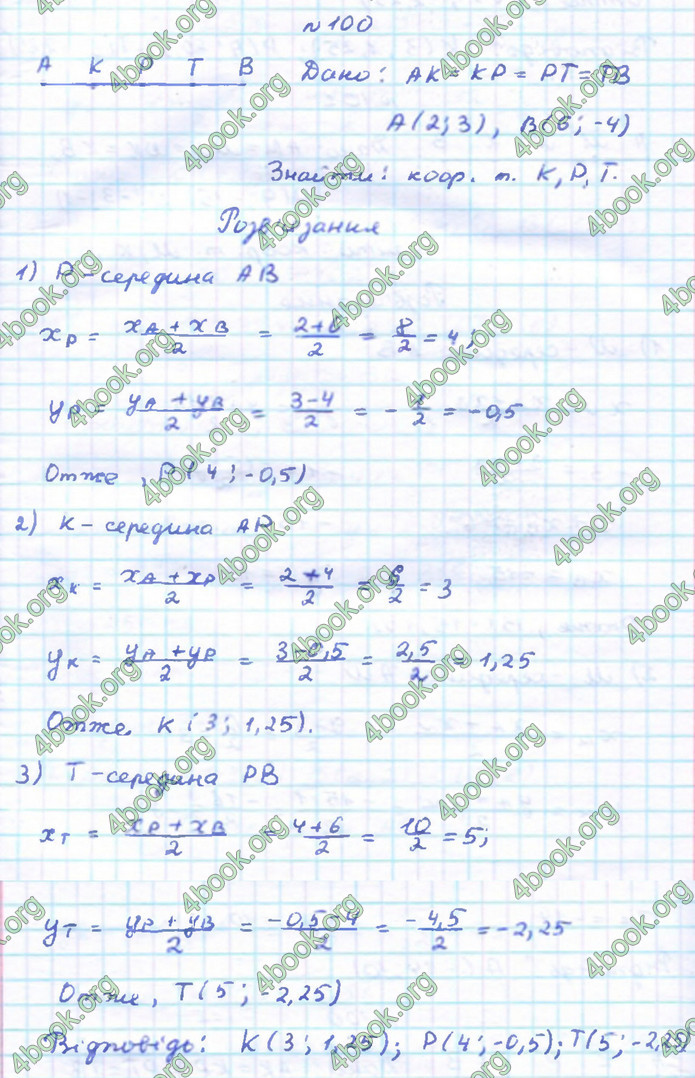 № 100
A K P T B Дано: AK = KP = PT = TB
A(2; 3), B(6; -4)
Знайти: коор. т. K, P, T.
Розв'язання
1) P - середина AB
xP = (xA + xB)/2 = (2+6)/2 = 8/2 = 4;
yP = (yA + yB)/2 = (3-4)/2 = -1/2 = -0,5
Отже, P(4; -0,5)
2) K - середина AP
xK = (xA + xP)/2 = (2+4)/2 = 6/2 = 3
yK = (yA + yP)/2 = (3-0,5)/2 = 2,5/2 = 1,25
Отже, K(3; 1,25).
3) T - середина PB
xT = (xP + xB)/2 = (4+6)/2 = 10/2 = 5;
yT = (yP + yB)/2 = (-0,5-4)/2 = (-4,5)/2 = -2,25
Отже, T(5; -2,25)
Відповідь: K(3; 1,25); P(4; -0,5); T(5; -2,25)
4book.org